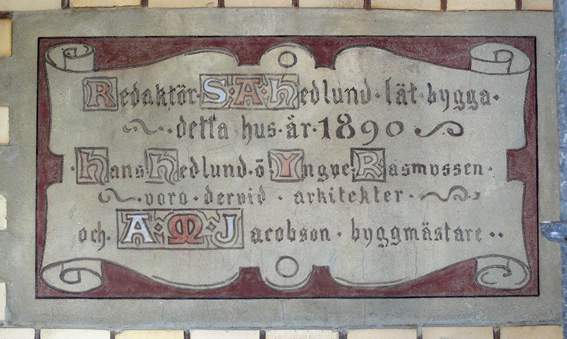 Redaktör S·A·Hedlund·lät·bygga·
detta·hus·år·1890
Hans Hedlund·ö Yngve Rasmussen·
voro·dervid·arkitekter·
och·A·M·Jacobson·byggmästare··